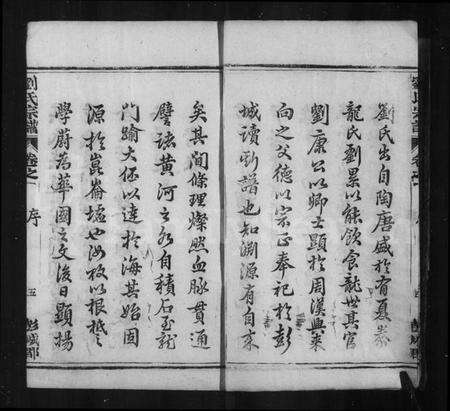 劉氏出自陶唐盛於有夏
龍氏劉累以能飲食龍世其官
劉康公以卿士顯於周漢興來
向之父德以宗正奉祀於彭
城讀斯譜也知淵源有自來
矣其間條理燦然血脉貫通
譬諸黃河之水自積石至龍
門踰大伾以達於海其始固
源於崑崙墟也如枚以根
學蔚為華國之文後日顯揚
劉氏宗譜
卷之一
序
五
彭城郡